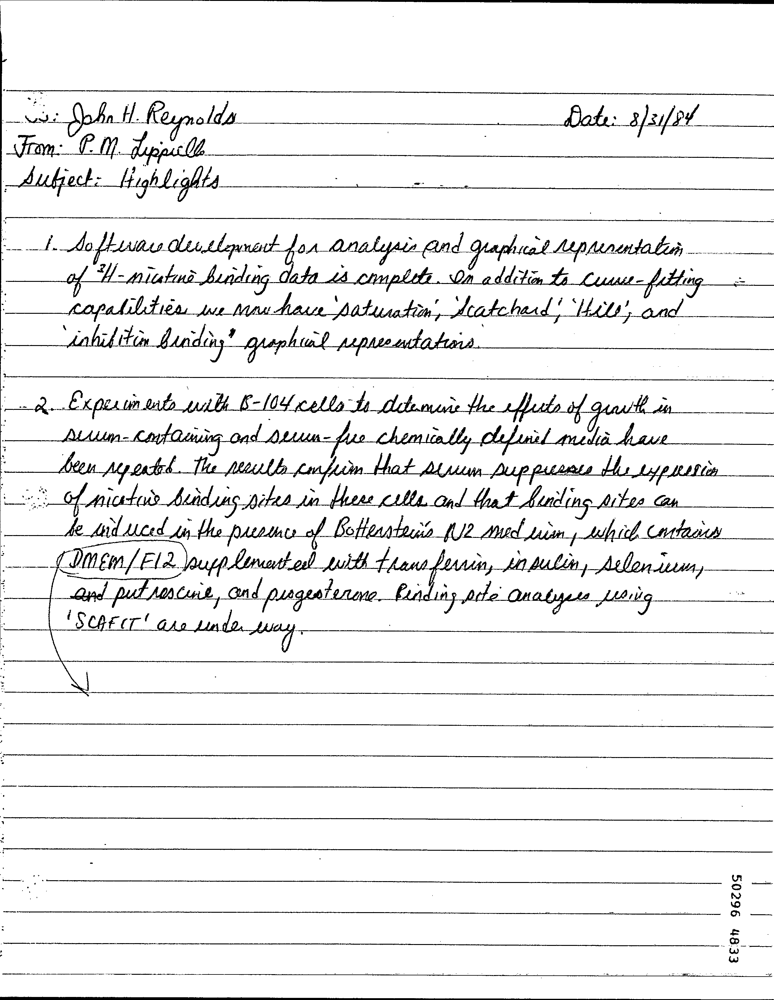 To: John H. Reynolds Date: 8/31/84
From: P.M. Lippiello
Subject: Highlights
1. Software development for analysis and graphical representation
of ³H-nicotine binding data is complete. In addition to curve-fitting
capabilities we now have 'saturation', 'Scatchard', 'Hill', and
'inhibition binding' graphical representations.
2. Experiments with B-104 cells to determine the effects of growth in
serum-containing and serum-free chemically defined media have
been repeated. The results confirm that serum suppresses the expression
of nicotine binding sites in these cells and that binding sites can
be induced in the presence of Bottenstein's N2 medium, which contains
DMEM/F12 supplemented with transferrin, insulin, selenium,
and putrescine, and progesterone. Binding site analyses using
'SCAFIT' are under way.
50296 4833